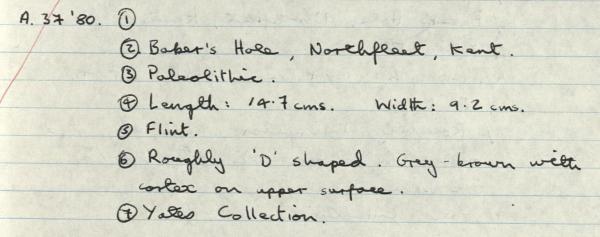 A. 37 '80. ①
② Baker's Hole, Northfleet, Kent.
③ Paleolithic.
④ Length: 14.7 cms. Width: 9.2 cms.
⑤ Flint.
⑥ Roughly 'D' shaped. Grey-brown with
cortex on upper surface.
⑦ Yates Collection.